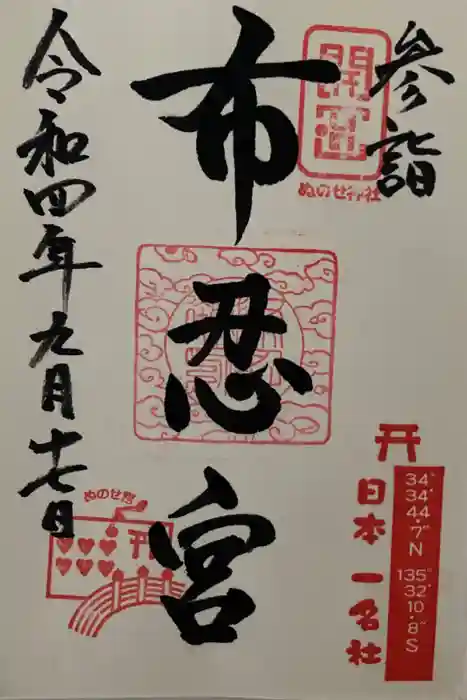 参詣
開運
ぬのせ神社
布忍宮
令和四年九月十七日
ぬのせ宮
日本一名社
34°
34'
44
.7"
N
135°
32'
10
.8"
S